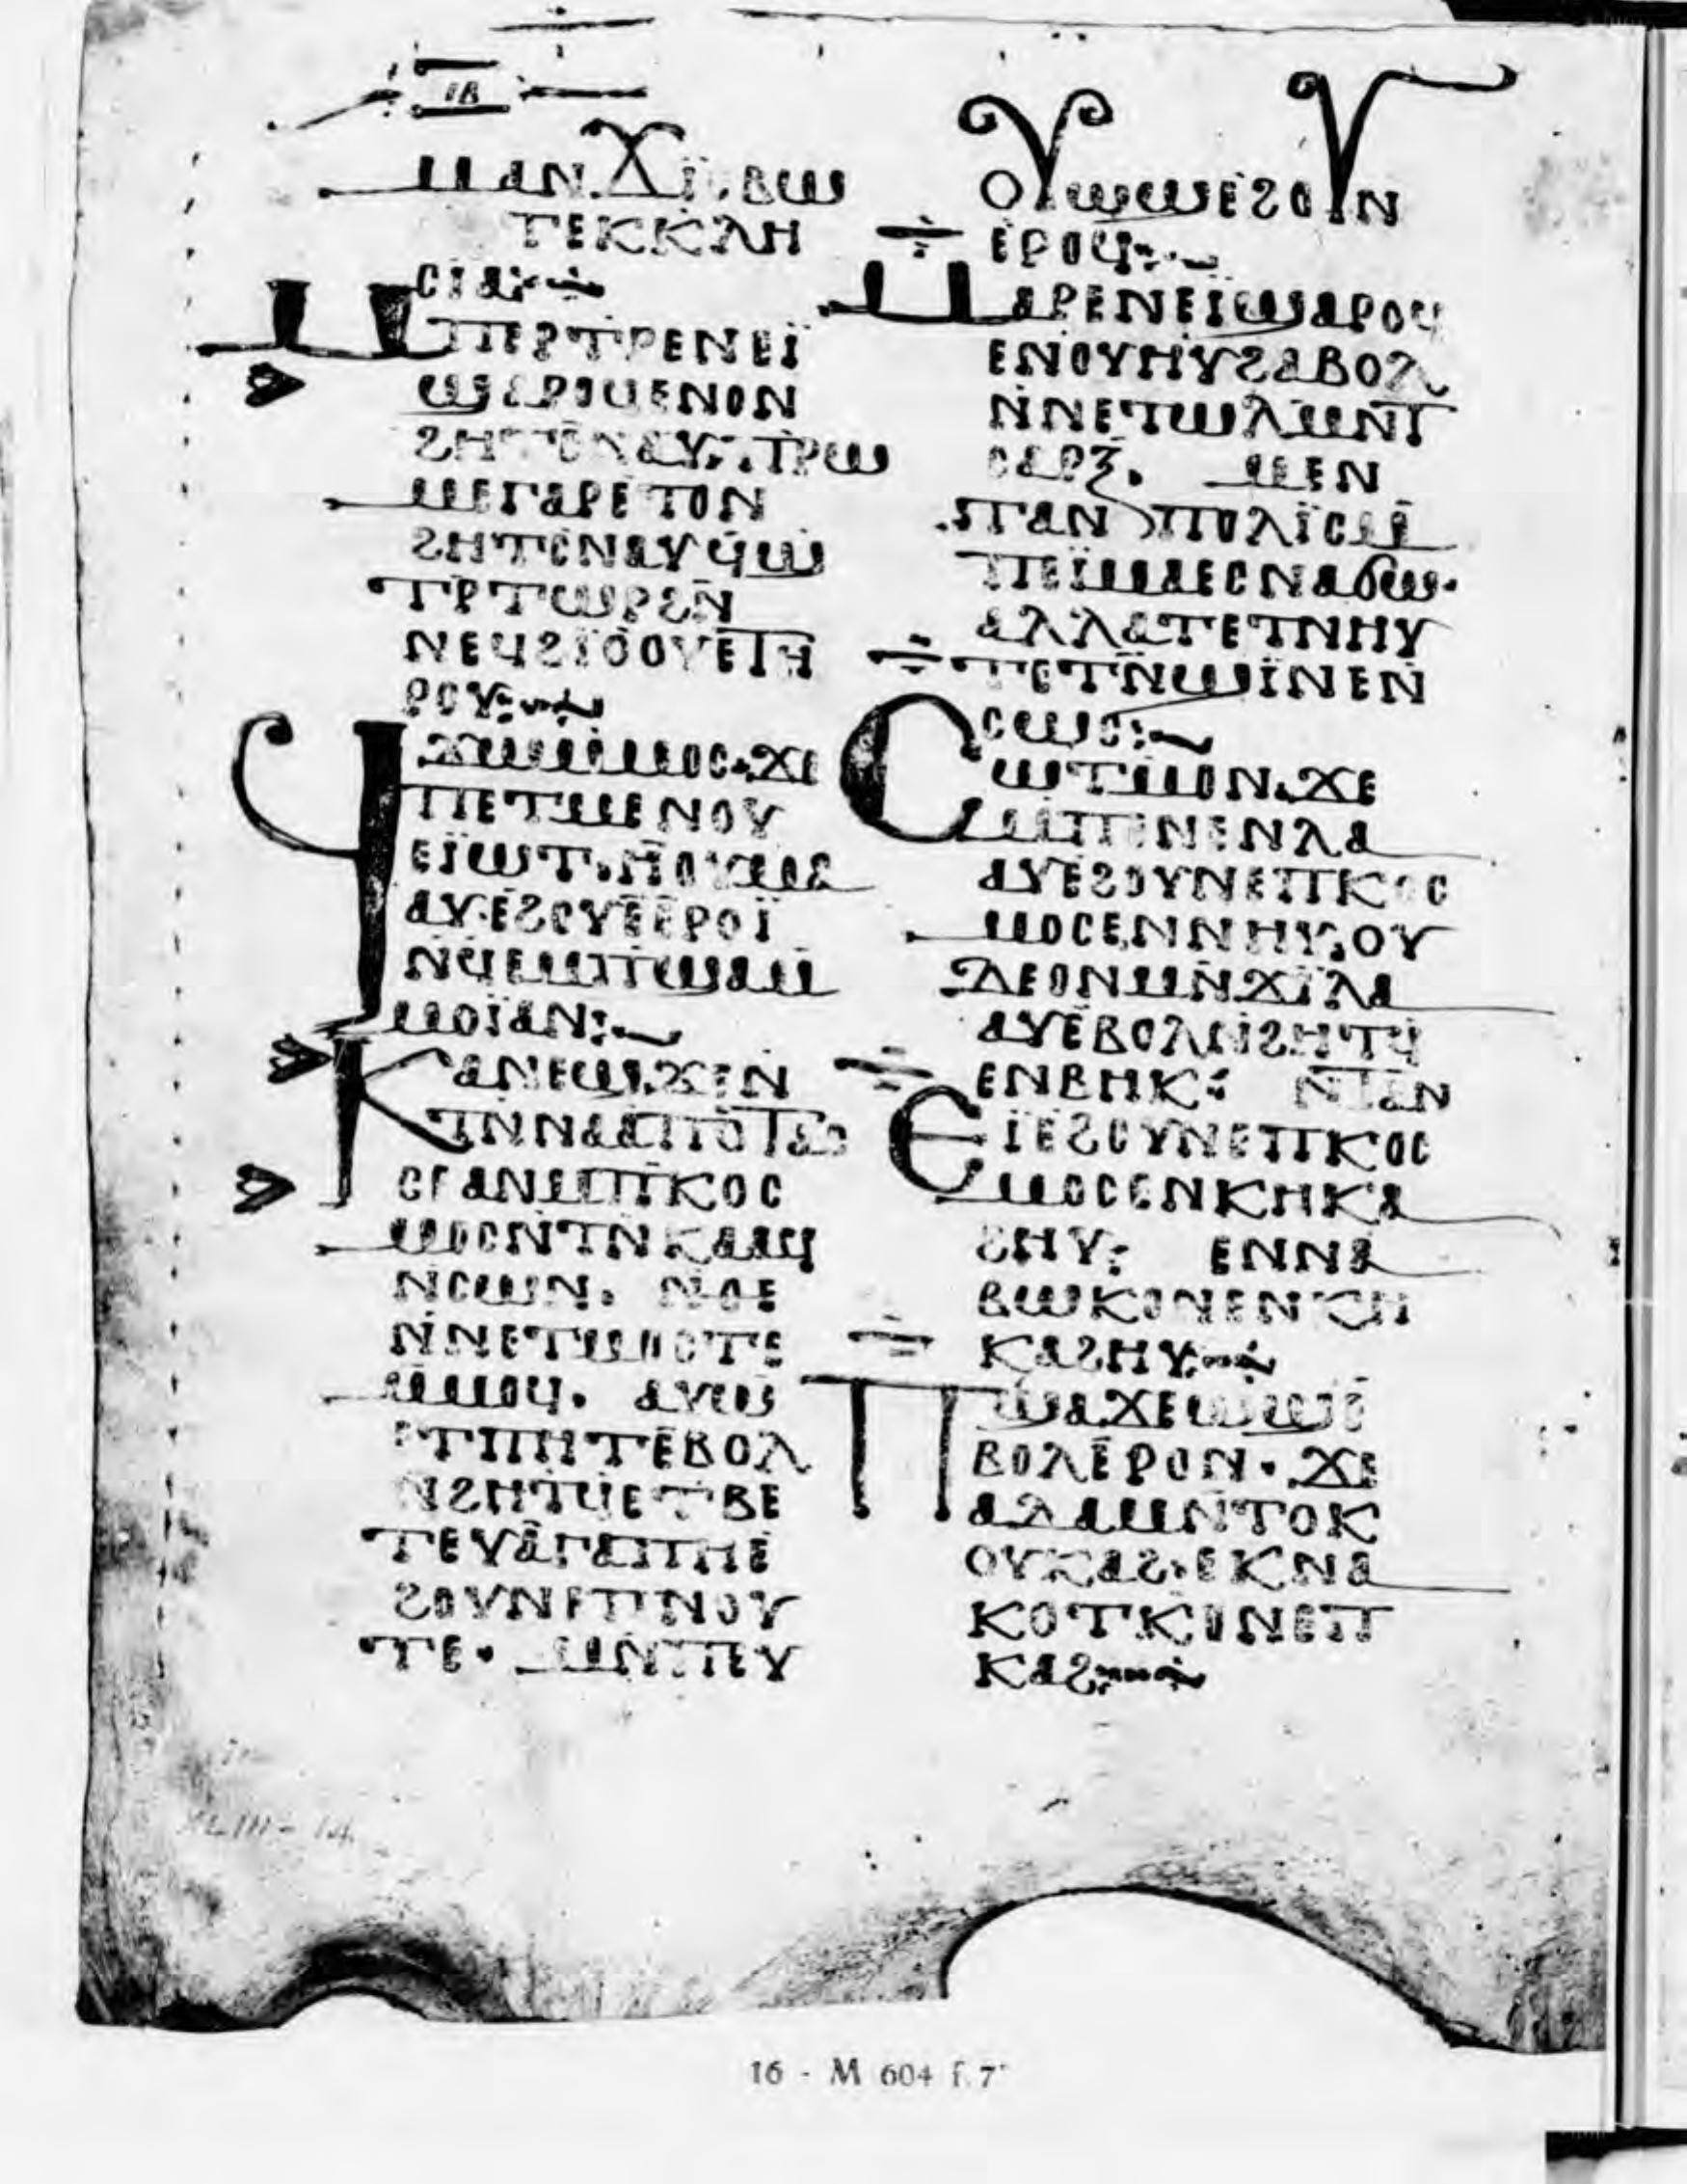 ⲓⲃ
ⲙⲁⲛϫⲓⲥⲃⲱ
ⲧⲉⲕⲕⲗⲏ
ⲥⲓⲁ
ⲙⲡⲉⲣⲧⲣⲉⲛⲉⲓ̈
ϣⲁⲣⲟϥⲉⲛⲟⲛ
ϩⲏⲧⲥⲛⲁⲩ· ⲡⲣⲱ
ⲙⲉⲅⲁⲣⲉⲧⲟⲛ
ϩⲏⲧⲥⲛⲁⲩϥϣ
ⲧⲣⲧⲱⲣϩⲛ
ⲛⲉϥϩⲓⲟⲟⲩⲉⲧⲏ
ⲣⲟⲩ
ϥϫⲱⲙⲙⲟⲥ·ϫⲉ
ⲡⲉⲧⲙⲉⲛⲟⲩ
ⲉⲓ̈ⲱⲧ·ⲏⲟⲩⲙⲁ
ⲁⲩ·ⲉϩⲟⲩⲉⲉⲣⲟⲓ̈
ⲛϥⲉⲙⲡϣⲁⲙ
ⲙⲟⲓ̈ⲁⲛ
ⲕⲁⲛⲉϣϫⲉⲛ
ⲧⲛⲛⲁⲁⲡⲟⲧⲁⲥ
ⲥⲉⲁⲛⲙⲡⲕⲟⲥ
ⲙⲟⲥⲛⲧⲛⲕⲁⲁϥ
ⲛⲥⲱⲛ· ⲛⲑⲉ
ⲛⲛⲉⲧⲙⲟⲥⲧⲉ
ⲙⲙⲟϥ· ⲁⲩⲱ
ⲉⲧⲡⲏⲧⲉⲃⲟⲗ
ⲛϩⲏⲧϥⲉⲧⲃⲉ
ⲧⲉⲩⲁⲅⲁⲡⲏⲉ
ϩⲟⲩⲛⲉⲡⲛⲟⲩ
ⲧⲉ· ⲙⲛⲡⲉⲩ
ⲟⲩⲱϣⲉϩⲟⲩⲛ
ⲉⲣⲟϥ
ⲙⲁⲣⲉⲛⲉⲓϣⲁⲣⲟϥ
ⲉⲛⲟⲩⲏⲩϩⲁⲃⲟⲗ
ⲛⲛⲉⲧⲱⲗⲙⲛⲧ
ⲥⲁⲣⲝ· ⲙⲉⲛ
ⲧⲁⲛⲡⲟⲗⲓ̈ⲥⲙ
ⲡⲉⲓ̈ⲙⲁⲉⲥⲛⲁϭⲱ·
ⲁⲗⲗⲁⲧⲉⲧⲛⲏⲩ
ⲧⲉⲧⲛϣⲓ̈ⲛⲉⲛ
ⲥⲱⲥ
ⲥⲱⲧⲙⲟⲛ·ϫⲉ
ⲙⲡⲉⲛⲉⲛⲗⲁ
ⲁⲩⲉϩⲟⲩⲛⲉⲡⲕⲟⲥ
ⲙⲟⲥⲉⲛⲛⲏⲩ·ⲟⲩ
ⲇⲉⲟⲛⲙⲛϫⲓⲗⲁ
ⲁⲩⲉⲃⲟⲗⲛϩⲏⲧϥ
ⲉⲛⲃⲏⲕ· ⲛⲧⲁⲛ
ⲉⲓ̈ⲉϩⲟⲩⲛⲉⲡⲕⲟⲥ
ⲙⲟⲥⲉⲛⲕⲏⲕⲁ
ϩⲏⲩ· ⲉⲛⲛⲁ
ⲃⲱⲕⲟⲛⲉⲛⲕⲏ
ⲕⲁϩⲏⲩ
ⲡϣⲁϫⲉⲱϣⲉ
ⲃⲟⲗⲉⲣⲟⲛ·ϫⲉ
ⲁⲇⲁⲙⲛⲧⲟⲕ
ⲟⲩⲕⲁϩ·ⲉⲕⲛⲁ
ⲕⲟⲧⲕⲟⲛⲉⲡ
ⲕⲁϩ
16 - M 604 f. 7ᵛ